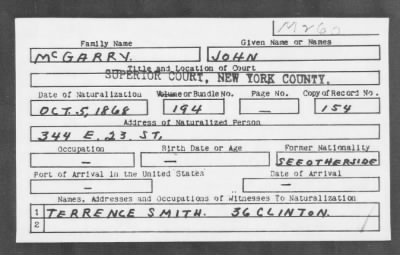 M260
Family Name Given Name or Names
McGARRY. JOHN
Title and Location of Court
SUPERIOR COURT, NEW YORK COUNTY.
Date of Naturalization Volume or Bundle No. Page No. Copy of Record No.
OCT. 5, 1868 194 — 154
Address of Naturalized Person
344 E. 23. ST.
Occupation Birth Date or Age Former Nationality
— — SEE OTHERSIDE
Port of Arrival in the United States Date of Arrival
— —
Names, Addresses and Occupations of Witnesses To Naturalization
1 TERRENCE SMITH. 36 CLINTON.
2